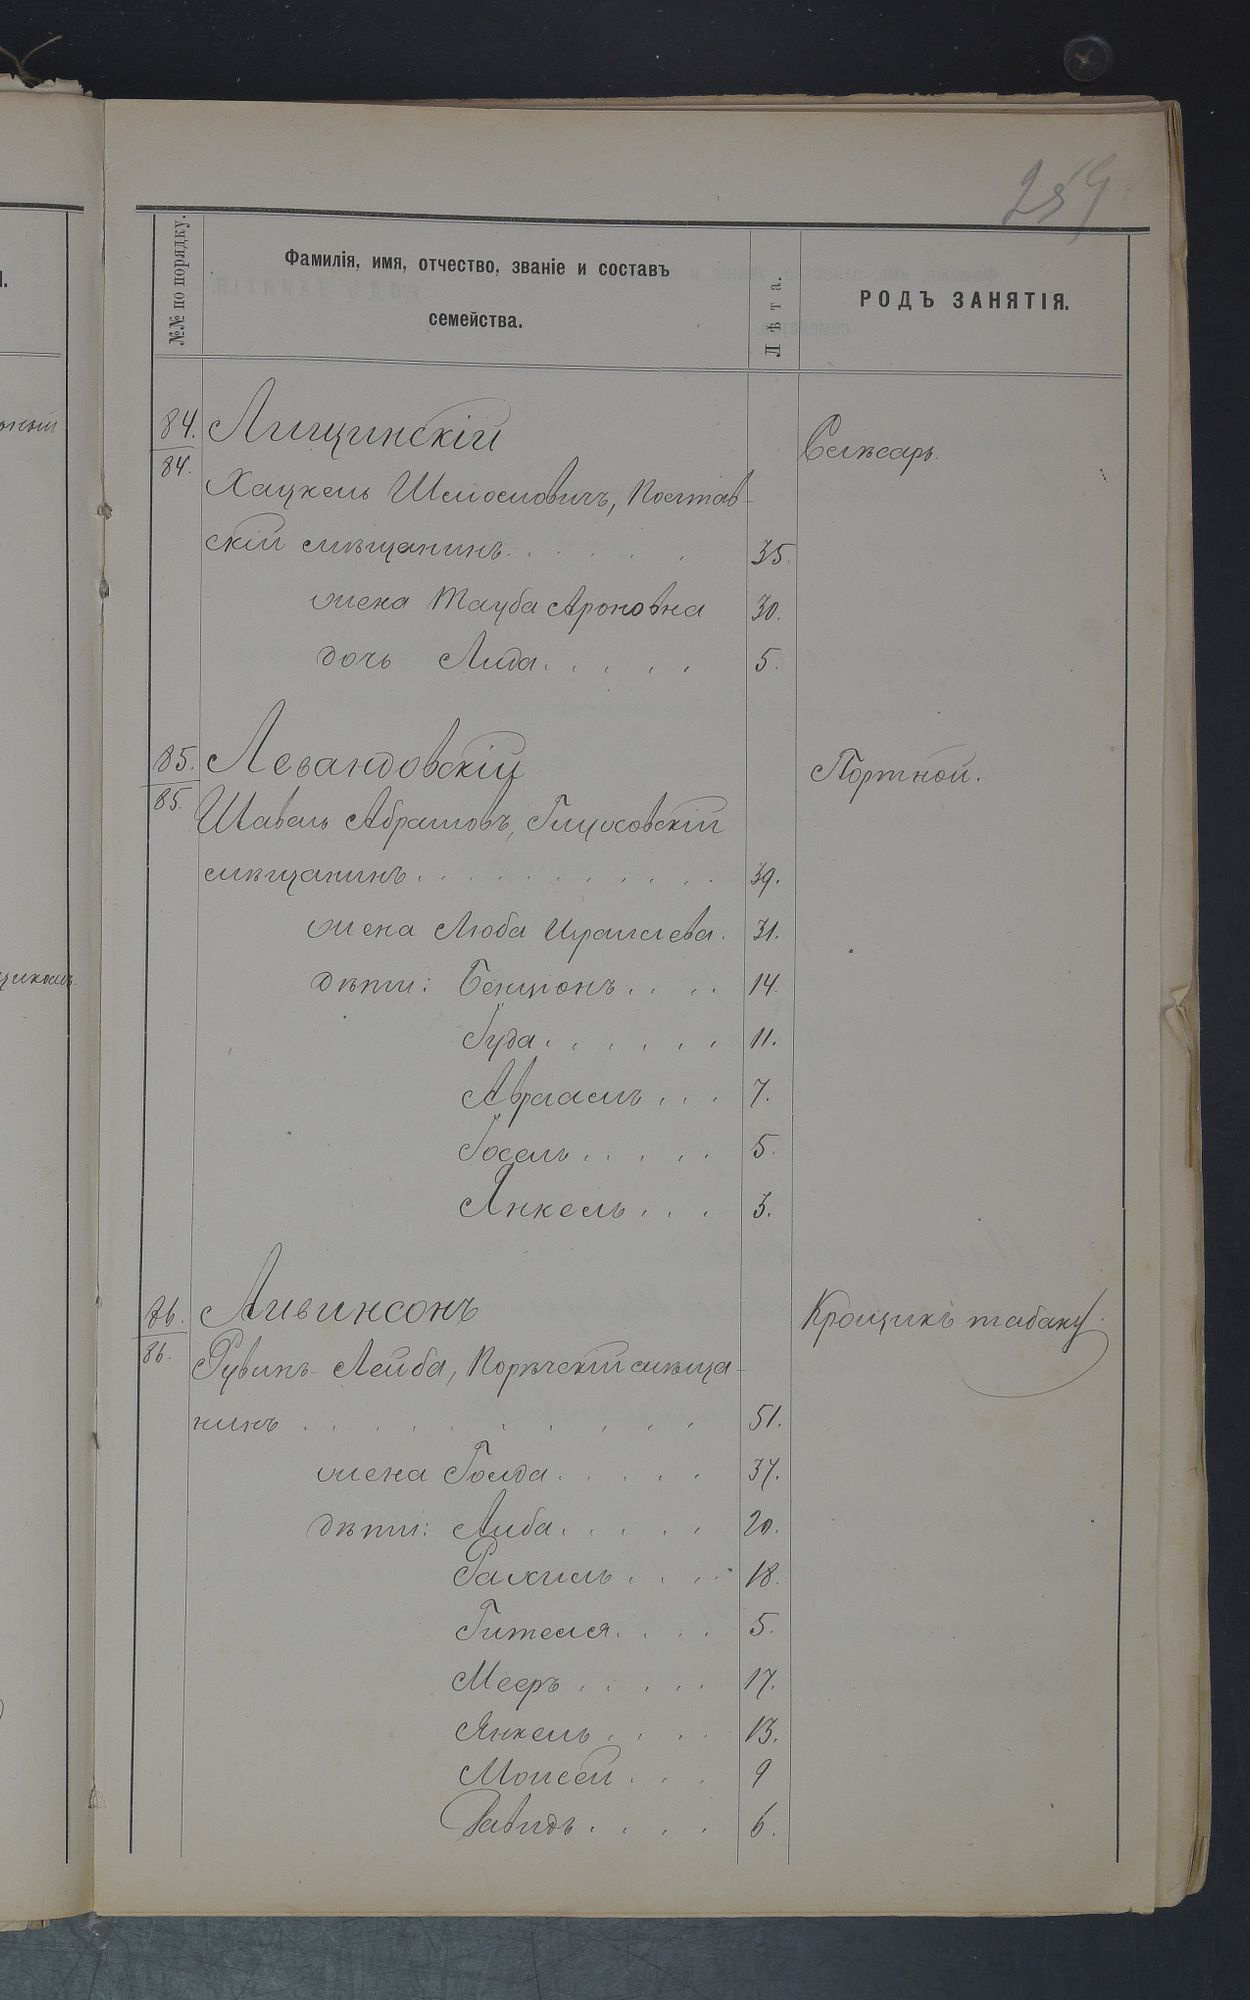 259
№№ по порядку.
Фамилія, имя, отчество, званіе и составъ
семейства.
Лѣта.
РОДЪ ЗАНЯТІЯ.
84. Лищинскій Слѣсарь.
84.
Хацкель Шмоиловичъ, Постав-
скій мѣщанинъ. 35.
жена Тауба Ароновна 30.
дочь Лида. 5.
85. Левандовскій Портной.
85.
Шавель Абрамовъ,
мѣщанинъ 39.
жена Люба Израилева. 31.
дѣти: Бенціонъ 14.
Гуда. 11.
Авраамъ 7.
Госель 5.
Янкель 3.
86. Ливинсонъ Крошикъ табаку.
86.
Рувинъ-Лейба, Порѣчскій мѣща-
нинъ 51.
жена Голда. 37.
дѣти: Либа. 20.
Рахиль 18.
Гителя. 5.
Мееръ 17.
Янкель 13.
Моисей 9
Давидъ 6.